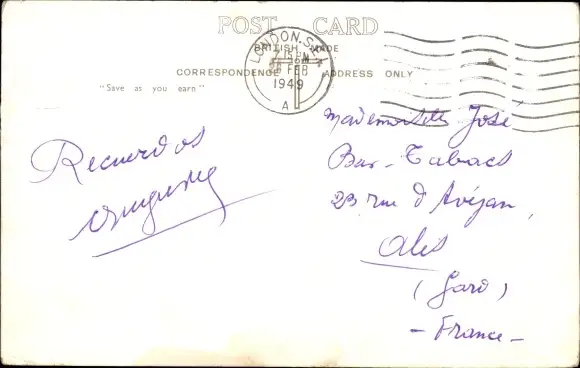 POST CARD
BRITISH MADE
CORRESPONDENCE ADDRESS ONLY
"Save as you earn"
LONDON. S.
7.15 PM
FEB
1949
A
Recuerdos
Mademoiselle José
Bar-Tabacs
23 rue d'Avéjan,
Alès
(Gard)
- France -